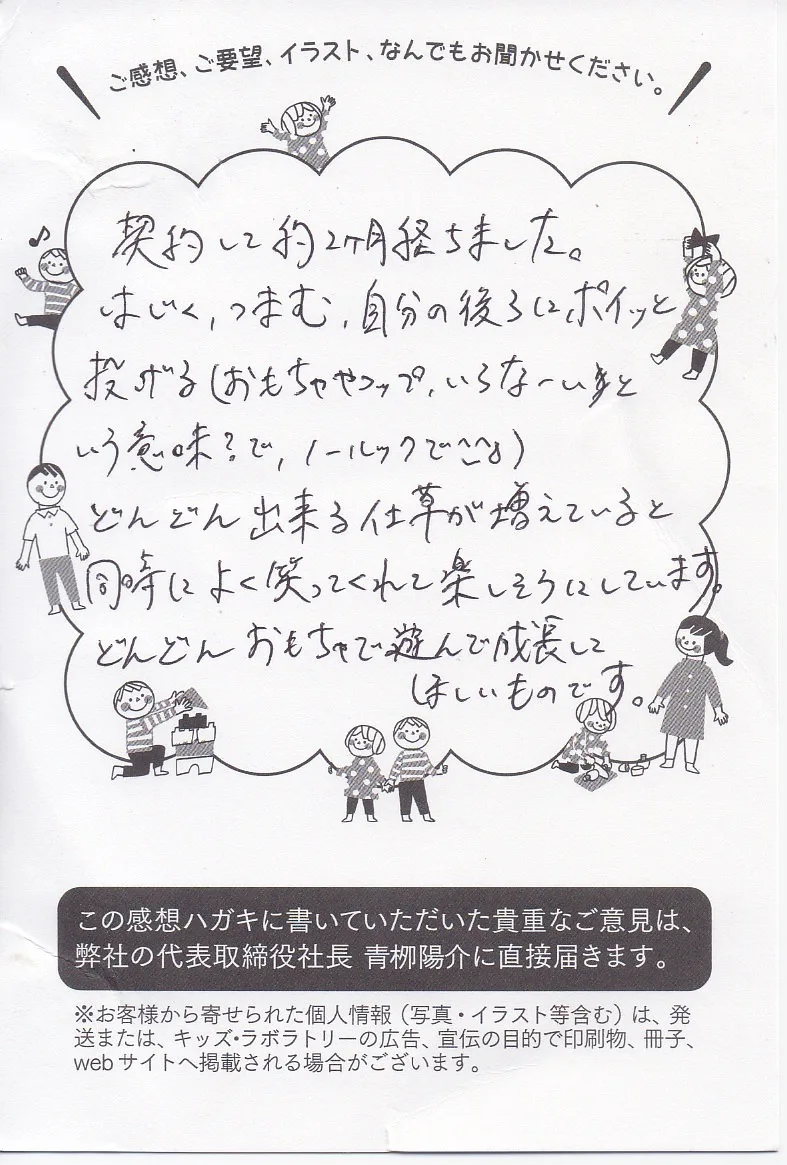 ご感想、ご要望、イラスト、なんでもお聞かせください。
契約して約2ヶ月経ちました。
はじく、つまむ、自分の後ろにポイッと
投げる(おもちゃやコップ、いらな～いと
いう意味?で、ノールックで^^)
どんどん出来る仕草が増えていると
同時によく笑ってくれて楽しそうにしています。
どんどんおもちゃで遊んで成長して
ほしいものです。
この感想ハガキに書いていただいた貴重なご意見は、
弊社の代表取締役社長 青栁陽介に直接届きます。
※お客様から寄せられた個人情報(写真・イラスト等含む)は、発
送または、キッズ・ラボラトリーの広告、宣伝の目的で印刷物、冊子、
webサイトへ掲載される場合がございます。